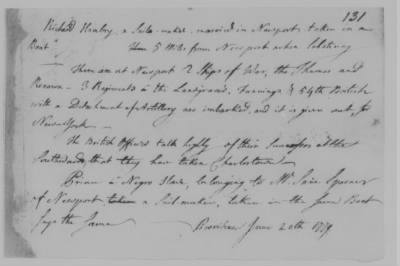 131
Richard Huxley, a Sail-maker, married in Newport, taken in a
Boat 5 Miles from Newport when lobstering
There are at Newport 2 Ships of War, the Thames and
Renown - 3 Regiments the Landgraves, Fannings & 54th British
with a Detachment of Artillery are embarked, and it is given out, for
New York -
The British Officers talk highly of their Successes at the
Southward, that they have taken Charlestown
Prime a Negro Slave, belonging to Mr. Spooner
of Newport, a Sailmaker, taken in the same Boat
says the same
Providence June 20th 1779